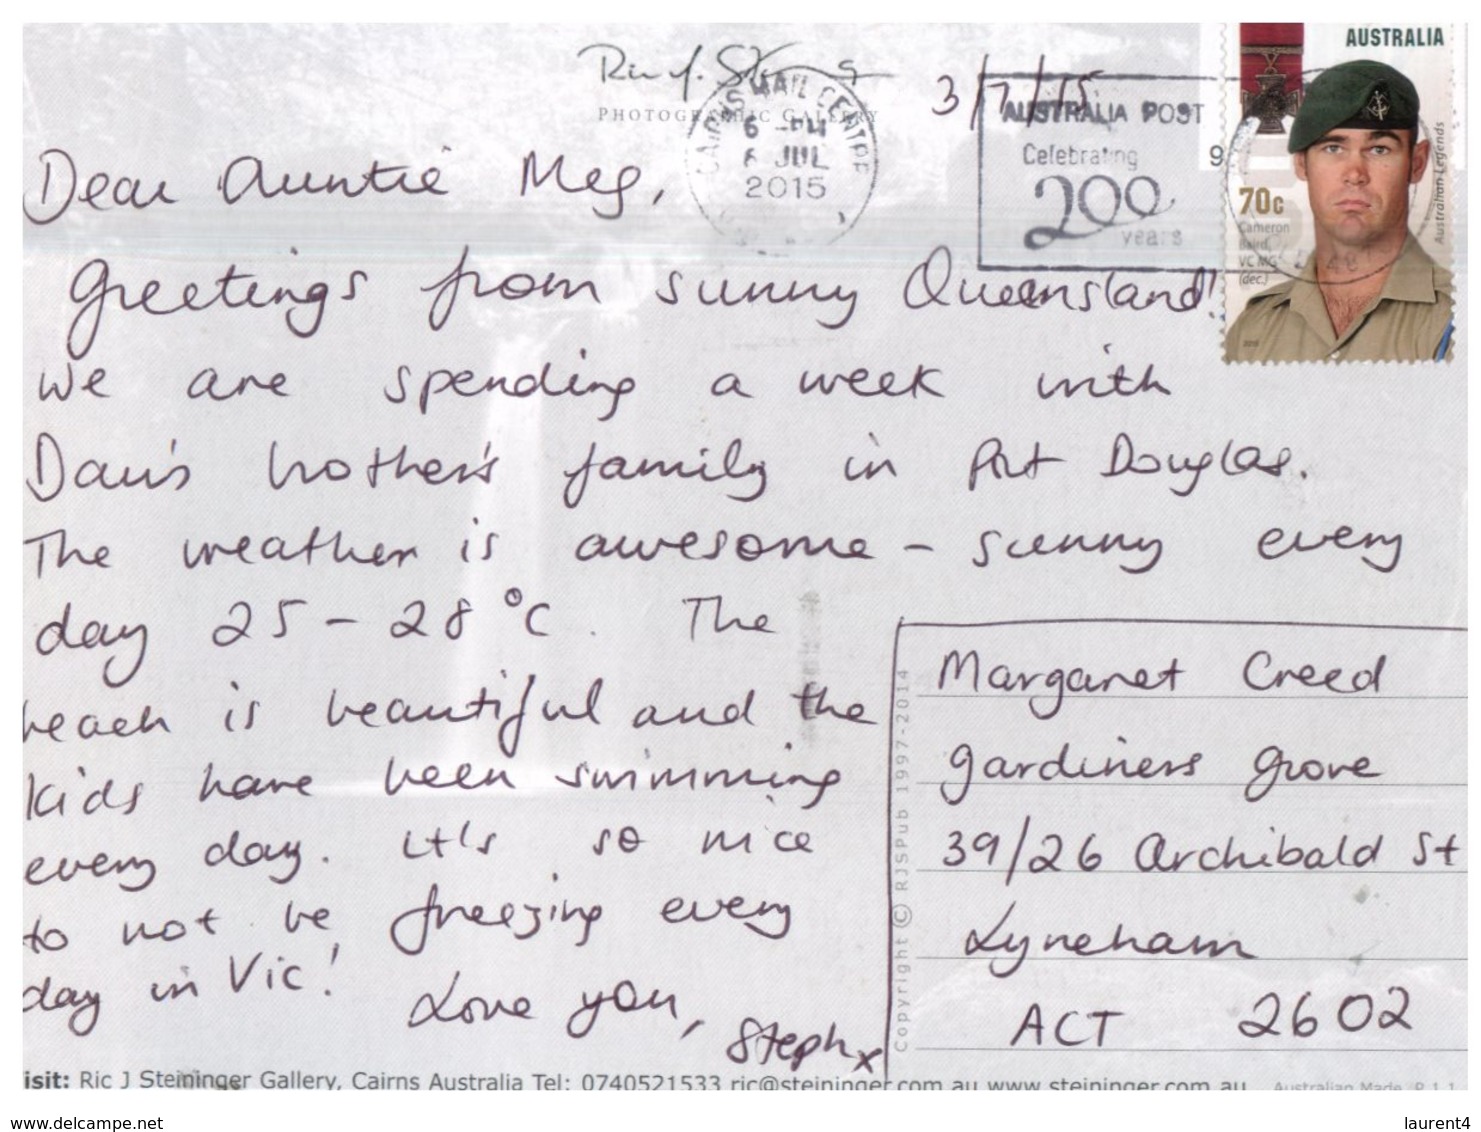 AUSTRALIA
Ric J. Steininger
PHOTOGRAPHIC GALLERY
CAIRNS MAIL CENTRE
6 -PM
6 JUL
2015
3/7/15
AUSTRALIA POST
Celebrating
200
years
9
70c
Cameron
Baird,
VC MG
(dec.)
2015
Australian Legends
Dear Auntie Meg,
Greetings from sunny Queensland!
We are spending a week with
Dan's brother's family in Port Douglas.
The weather is awesome - sunny every
day 25 - 28 °C. The
beach is beautiful and the
kids have been swimming
every day. It's so nice
to not be freezing every
day in Vic!
Love you,
Steph x
Margaret Creed
Gardiners Grove
39/26 Archibald St
Lyneham
ACT 2602
Copyright © RJSPub 1997-2014
isit: Ric J Steininger Gallery, Cairns Australia Tel: 0740521533 ric@steininger.com.au www.steininger.com.au Australian Made
www.delcampe.net
laurent4